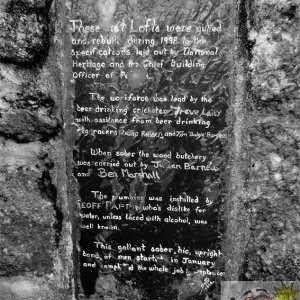 These Net Lofts were gutted
and rebuilt during 1998 to the
specifications laid out by National
Heritage and the Chief Building
Officer of
The workforce was lead by the
beer drinking cricketer Treve Lacy
with assistance from beer drinking
racers and Tim
When sober the wood butchery
was carried out by Julian Barnett
and Ben Marshall
The plumbing was installed by
GEOFF TAPPIN who's dislike for
water, unless laced with alcohol, was
well known.
This gallant sober, hic, upright
band of men started in January
and completed the whole job